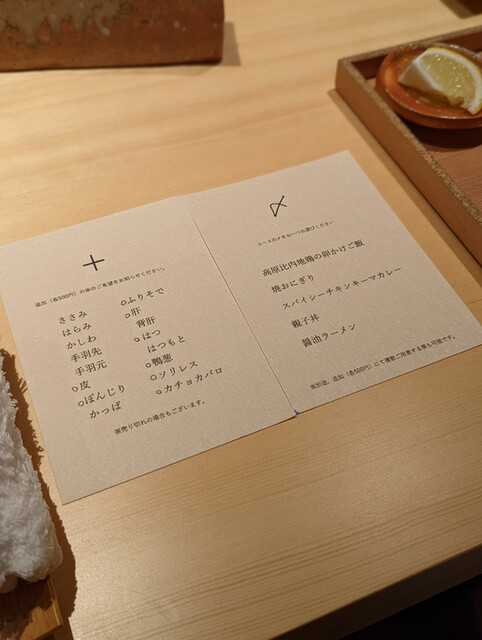 ＋
追加（各500円）の串のご希望をお知らせください。
ささみ
はらみ
かしわ
手羽先
手羽元
○皮
○ぼんじり
かっぱ
○ふりそで
○肝
背肝
○はつ
はつもと
○鴨葱
○ソリレス
○カチョカバロ
※売り切れの場合もございます。
〆
コースの〆をお一つお選びください
高原比内地鶏の卵かけご飯
焼おにぎり
スパイシーチキンキーマカレー
親子丼
醤油ラーメン
※別途、追加（各500円）にて複数ご用意する事も可能です。